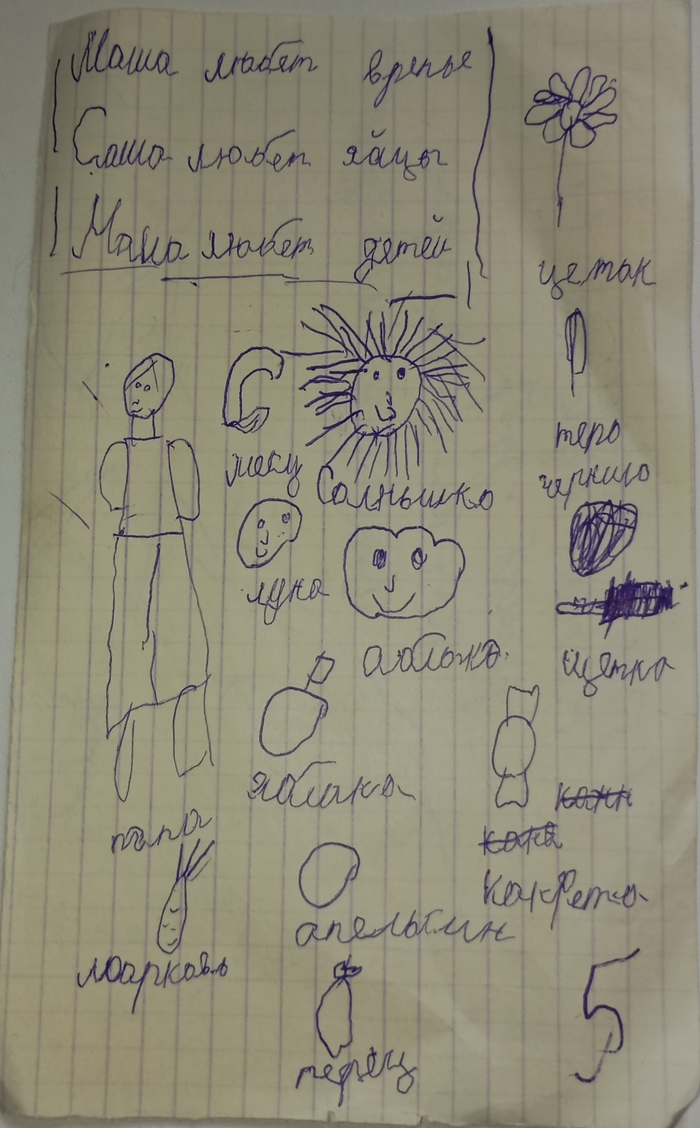 Маша любет врепье
Саша любет яйцы
Маша любет детей
цеток
перо
чернило
Солнышко
луна
аблоко
щетка
яблако
папа
какрета
апельсин
моарковь
перец
5